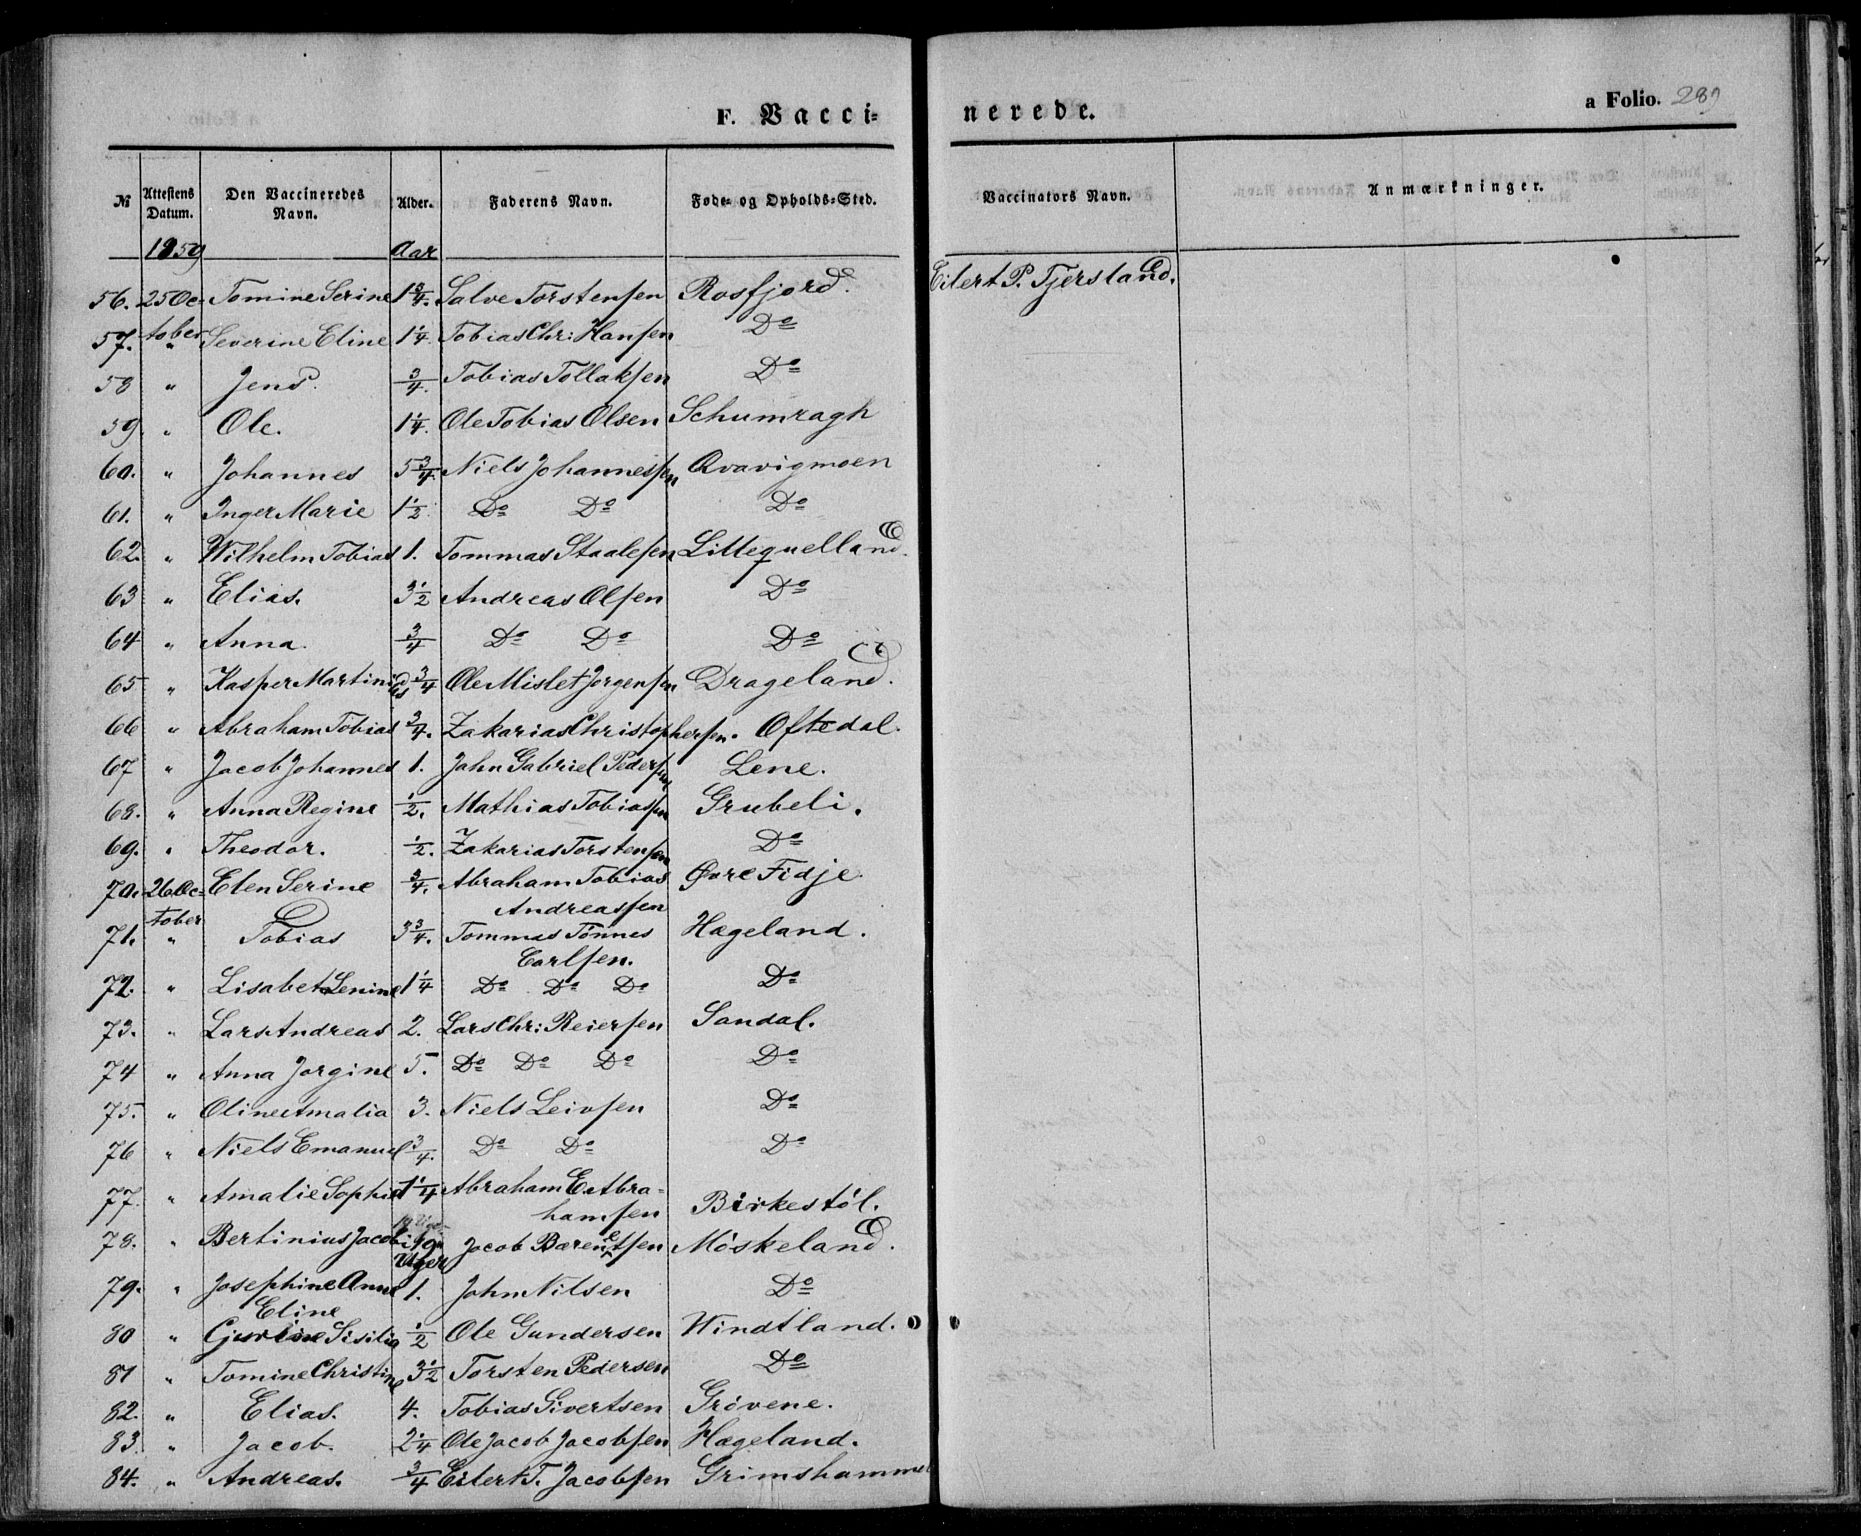 F. Vacci-
nerede.
a Folio. 289
№ Attestens Datum. Den Vaccineredes Navn. Alder. Faderens Navn. Føde- og Opholds-Sted. Vaccinators Navn. Anmærkninger.
1859 Aar
56. 25 Oc- Tomine Serine 1 3/4. Salve Torstensen Rosfjord. Eilert P. Tjersland.
57. tober " Severine Eline 1 1/4 Tobias Chr: Hansen Do
58 " Jens. 3/4. Tobias Tollaksen Do
59. " Ole. 1 1/4. Ole Tobias Olsen Schumragh
60. " Johannes 5 3/4 Niels Johannessen Qvavigmoen
61. " Inger Marie 1 1/2 Do Do Do
62. " Wilhelm Tobias 1. Tommas Staalesen Littequelland.
63 " Elias. 3 1/2 Andreas Olsen Do
64 " Anna. 3/4 Do Do Do
65 " Kasper Martinius 3/4 Ole Mislet Jørgensen Drageland.
66 " Abraham Tobias 3/4. Zakarias Christophersen. Oftedal.
67 " Jacob Johannes 1. John Gabriel Pedersen Lene.
68. " Anna Regine 1/2. Mathias Tobiassen Grubeli.
69. " Theodor. 1/2. Zakarias Torstensen Do
70. 26 Oc- Elen Serine 3/4. Abraham Tobias Øvre Fidje.
tober Andreassen
71. " Tobias 3 3/4. Tommas Tønnes Hægeland.
Carlsen.
72. " Lisabet Lenine 1 1/4 Do Do Do Do
73. " Lars Andreas 2. Lars Chr: Reiersen Sandal.
74 " Anna Jorgine 5. Do Do Do Do
75. " Oline Amalia 3. Niels Leivsen Do
76 " Niels Emanuel 3/4. Do Do Do
77. " Amalie Sophie 1 1/4 Abraham E. Abra-
hamsen Birkestøl.
78. " Bertinius Jacob 19 Uger Jacob Bærentsen Møskeland.
79. " Josephine Anne 1. John Nilsen Do
Eline
80 " Gurine Sisilia 1/2 Ole Gundersen Windtland.
81 " Tomine Christine 3 1/2 Torsten Pedersen Do
82. " Elias. 4. Tobias Sivertsen Grøvene.
83. " Jacob. 2 1/4 Ole Jacob Jacobsen Hægeland.
84. " Andreas. 3/4 Eilert T. Jacobsen Grimshammer